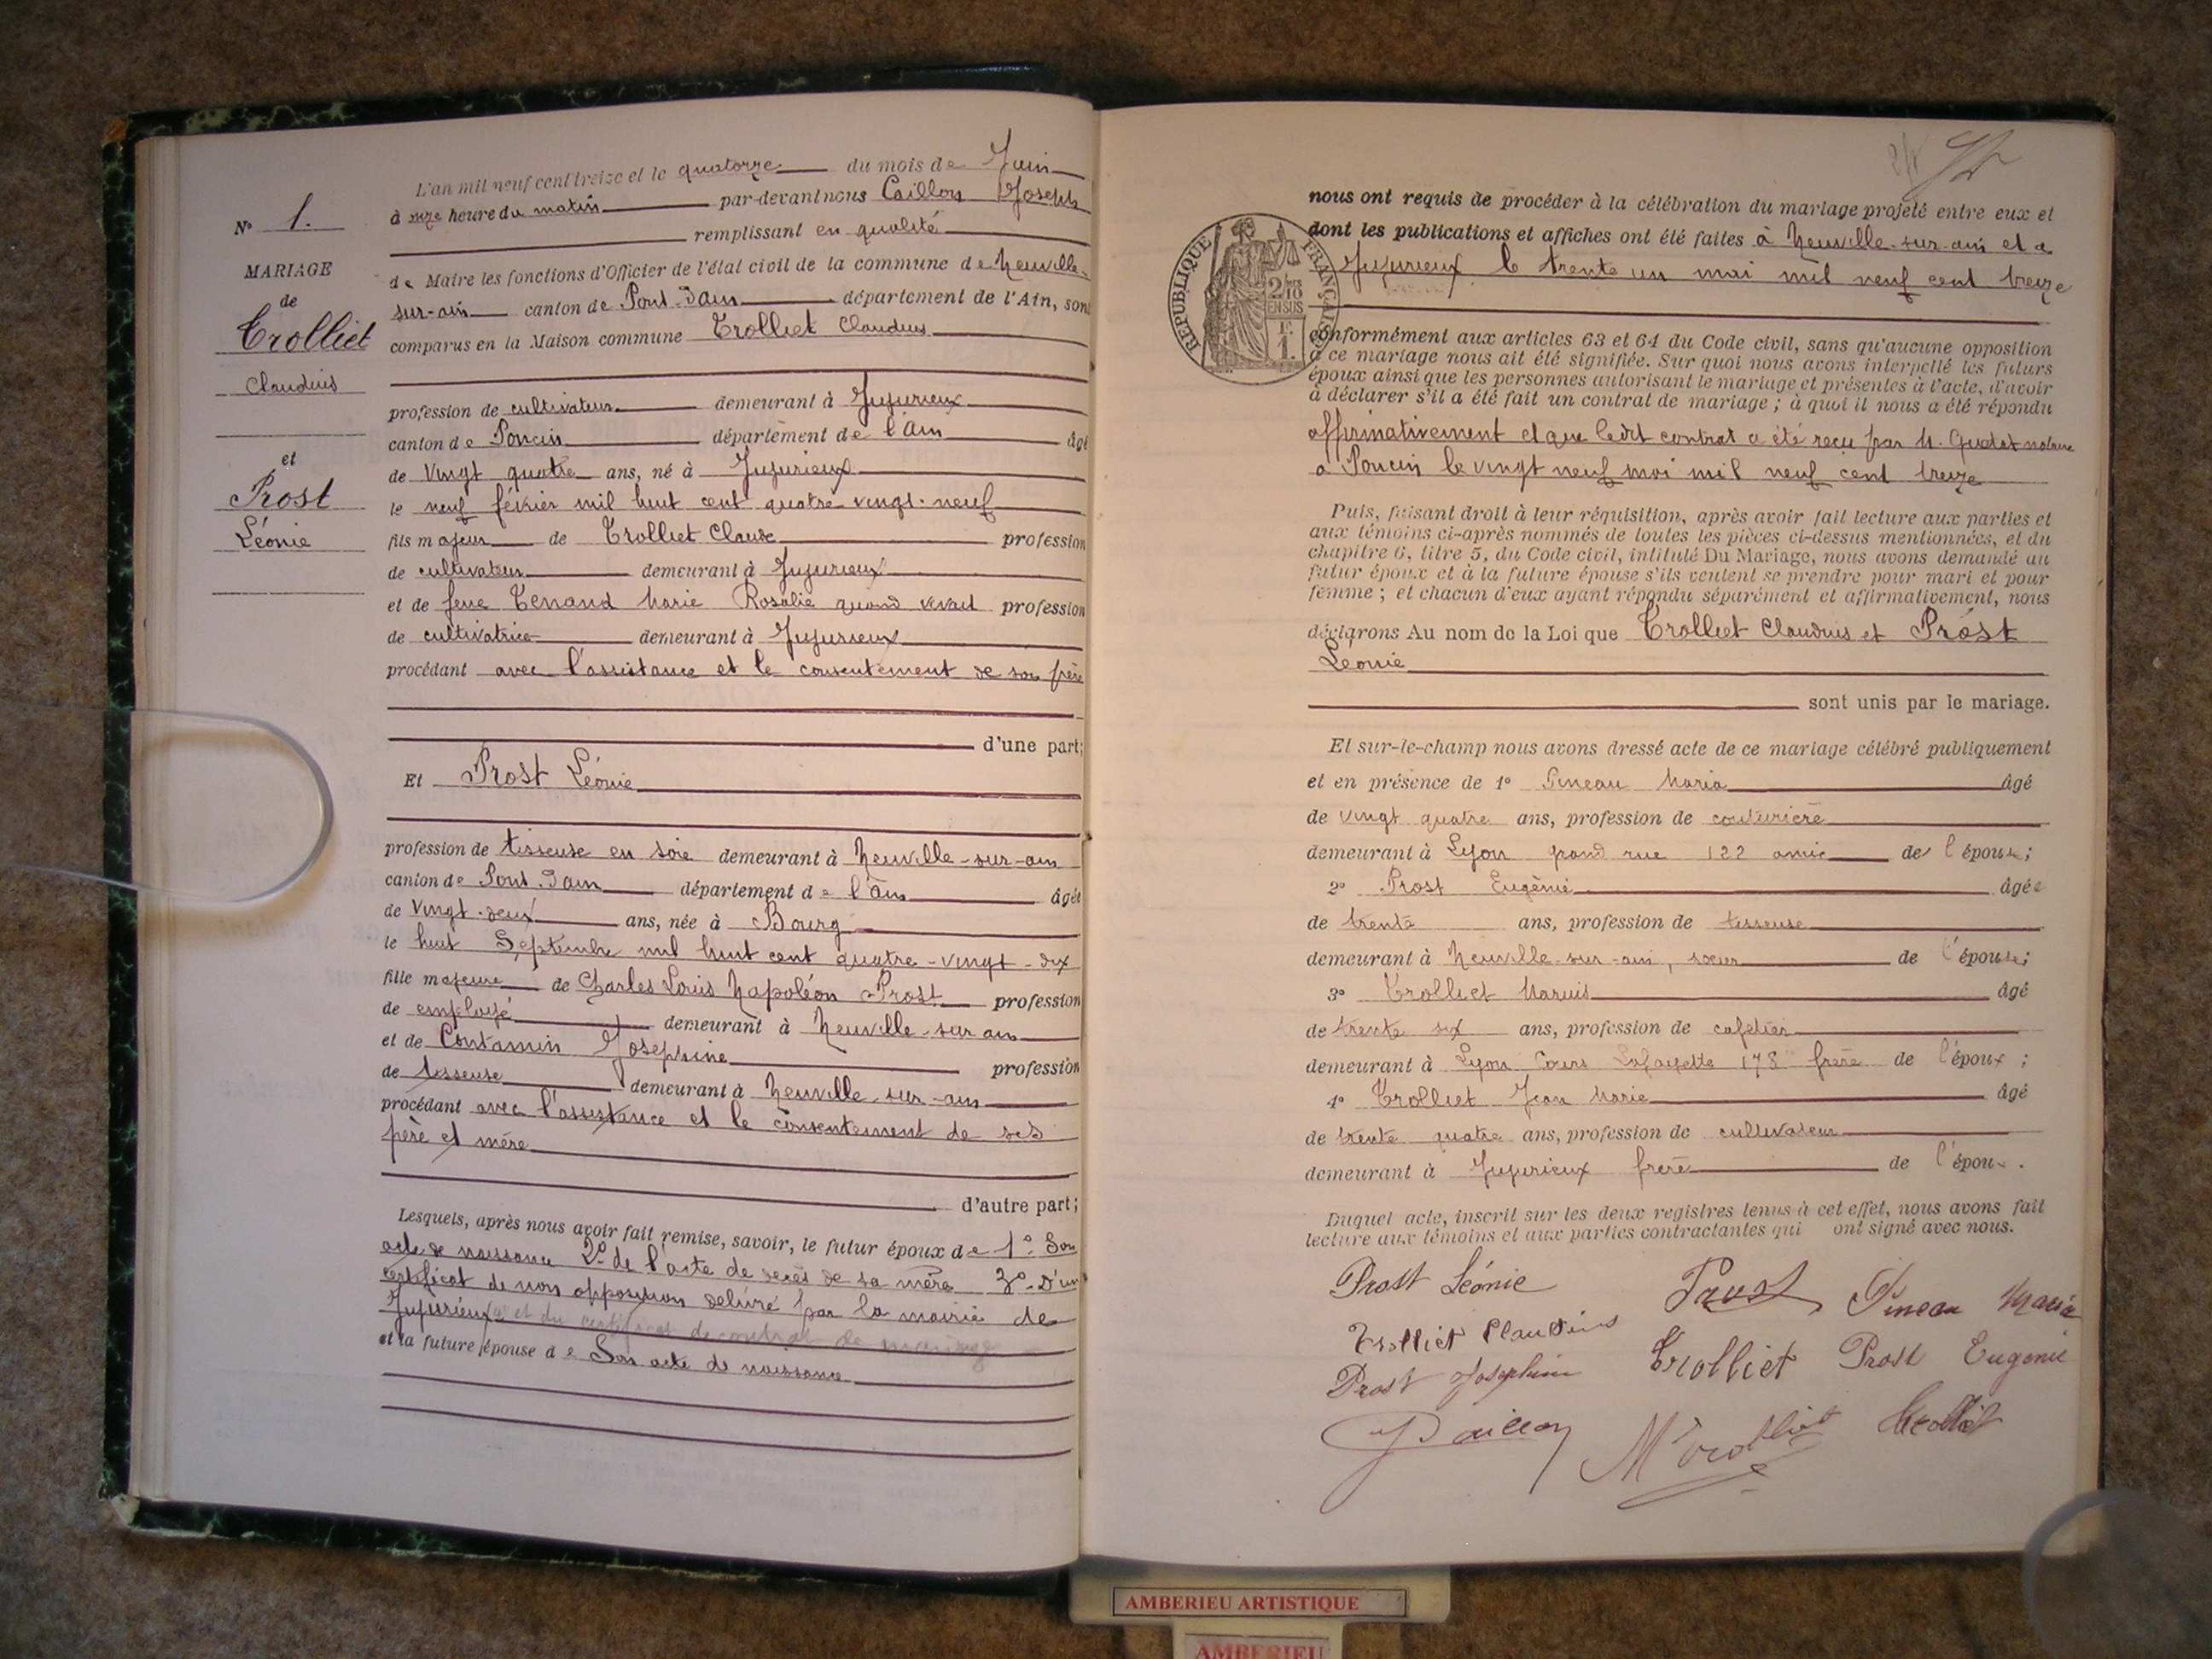 N° 1.
MARIAGE
de
Trolliet
Claudius
et
Prost
Léonie
L'an mil neuf cent treize et le quatorze du mois de Juin
à onze heure du matin par-devant nous Caillon Joseph
remplissant en qualité
de Maire les fonctions d'Officier de l'état civil de la commune de Neuville-
sur-ain canton de Pont-d'ain département de l'Ain, sont
comparus en la Maison commune Trolliet Claudius
profession de cultivateur demeurant à Jujurieux
canton de Poncin département de l'Ain âgé
de vingt quatre ans, né à Jujurieux
le neuf février mil huit cent quatre-vingt-neuf
fils majeur de Trolliet Claude profession
de cultivateur demeurant à Jujurieux
et de feue Tenand Marie Rosalie quand vivait profession
de cultivatrice demeurant à Jujurieux
procédant avec l'assistance et le consentement de son frère
d'une part;
Et Prost Léonie
profession de tisseuse en soie demeurant à Neuville-sur-ain
canton de Pont-d'ain département de l'ain âgée
de vingt-deux ans, née à Bourg
le huit Septembre mil huit cent quatre-vingt-dix
fille majeure de Charles Louis Napoléon Prost profession
de employé demeurant à Neuville-sur-ain
et de Contamin Joséphine profession
de tisseuse demeurant à Neuville-sur-ain
procédant avec l'assistance et le consentement de ses
père et mère
d'autre part;
Lesquels, après nous avoir fait remise, savoir, le futur époux de 1° Son
acte de naissance 2° de l'acte de décès de sa mère 3° D'un
certificat de non opposition délivré par la mairie de
Jujurieux 4° et du certificat de contrat de mariage
et la future épouse de Son acte de naissance
nous ont requis de procéder à la célébration du mariage projeté entre eux et
dont les publications et affiches ont été faites à Neuville-sur-ain et a
Jujurieux le trente un mai mil neuf cent treize
RÉPUBLIQUE FRANÇAISE
2/10 EN SUS
F.
1.
conformément aux articles 63 et 64 du Code civil, sans qu'aucune opposition
à ce mariage nous ait été signifiée. Sur quoi nous avons interpellé les futurs
époux ainsi que les personnes autorisant le mariage et présentes à l'acte, d'avoir
à déclarer s'il a été fait un contrat de mariage ; à quoi il nous a été répondu
affirmativement et que ledit contrat a été reçu par M. Gudet notaire
a Poncin le vingt neuf mai mil neuf cent treize
Puis, faisant droit à leur réquisition, après avoir fait lecture aux parties et
aux témoins ci-après nommés de toutes les pièces ci-dessus mentionnées, et du
chapitre 6, titre 5, du Code civil, intitulé Du Mariage, nous avons demandé au
futur époux et à la future épouse s'ils veulent se prendre pour mari et pour
femme ; et chacun d'eux ayant répondu séparément et affirmativement, nous
déclarons Au nom de la Loi que Trolliet Claudius et Prost
Léonie
sont unis par le mariage.
Et sur-le-champ nous avons dressé acte de ce mariage célébré publiquement
et en présence de 1° Pineau Maria âgé
de vingt quatre ans, profession de couturière
demeurant à Lyon grand rue 122 amie de l'épouse;
2° Prost Eugènie âgée
de trente ans, profession de tisseuse
demeurant à Neuville-sur-ain, soeur de l'épouse;
3° Trolliet Marius âgé
de trente six ans, profession de cafetier
demeurant à Lyon Cours Lafayette 178 frère de l'époux ;
4° Trolliet Jean Marie âgé
de trente quatre ans, profession de cultivateur
demeurant à Jujurieux frère de l'époux.
Duquel acte, inscrit sur les deux registres tenus à cet effet, nous avons fait
lecture aux témoins et aux parties contractantes qui ont signé avec nous.
Prost Léonie Prost Pineau Maria
Trolliet Claudius
Prost Joséphine Trolliet Prost Eugenie
J Caillon M Trolliet Trolliet
AMBERIEU ARTISTIQUE
AMBERIEU